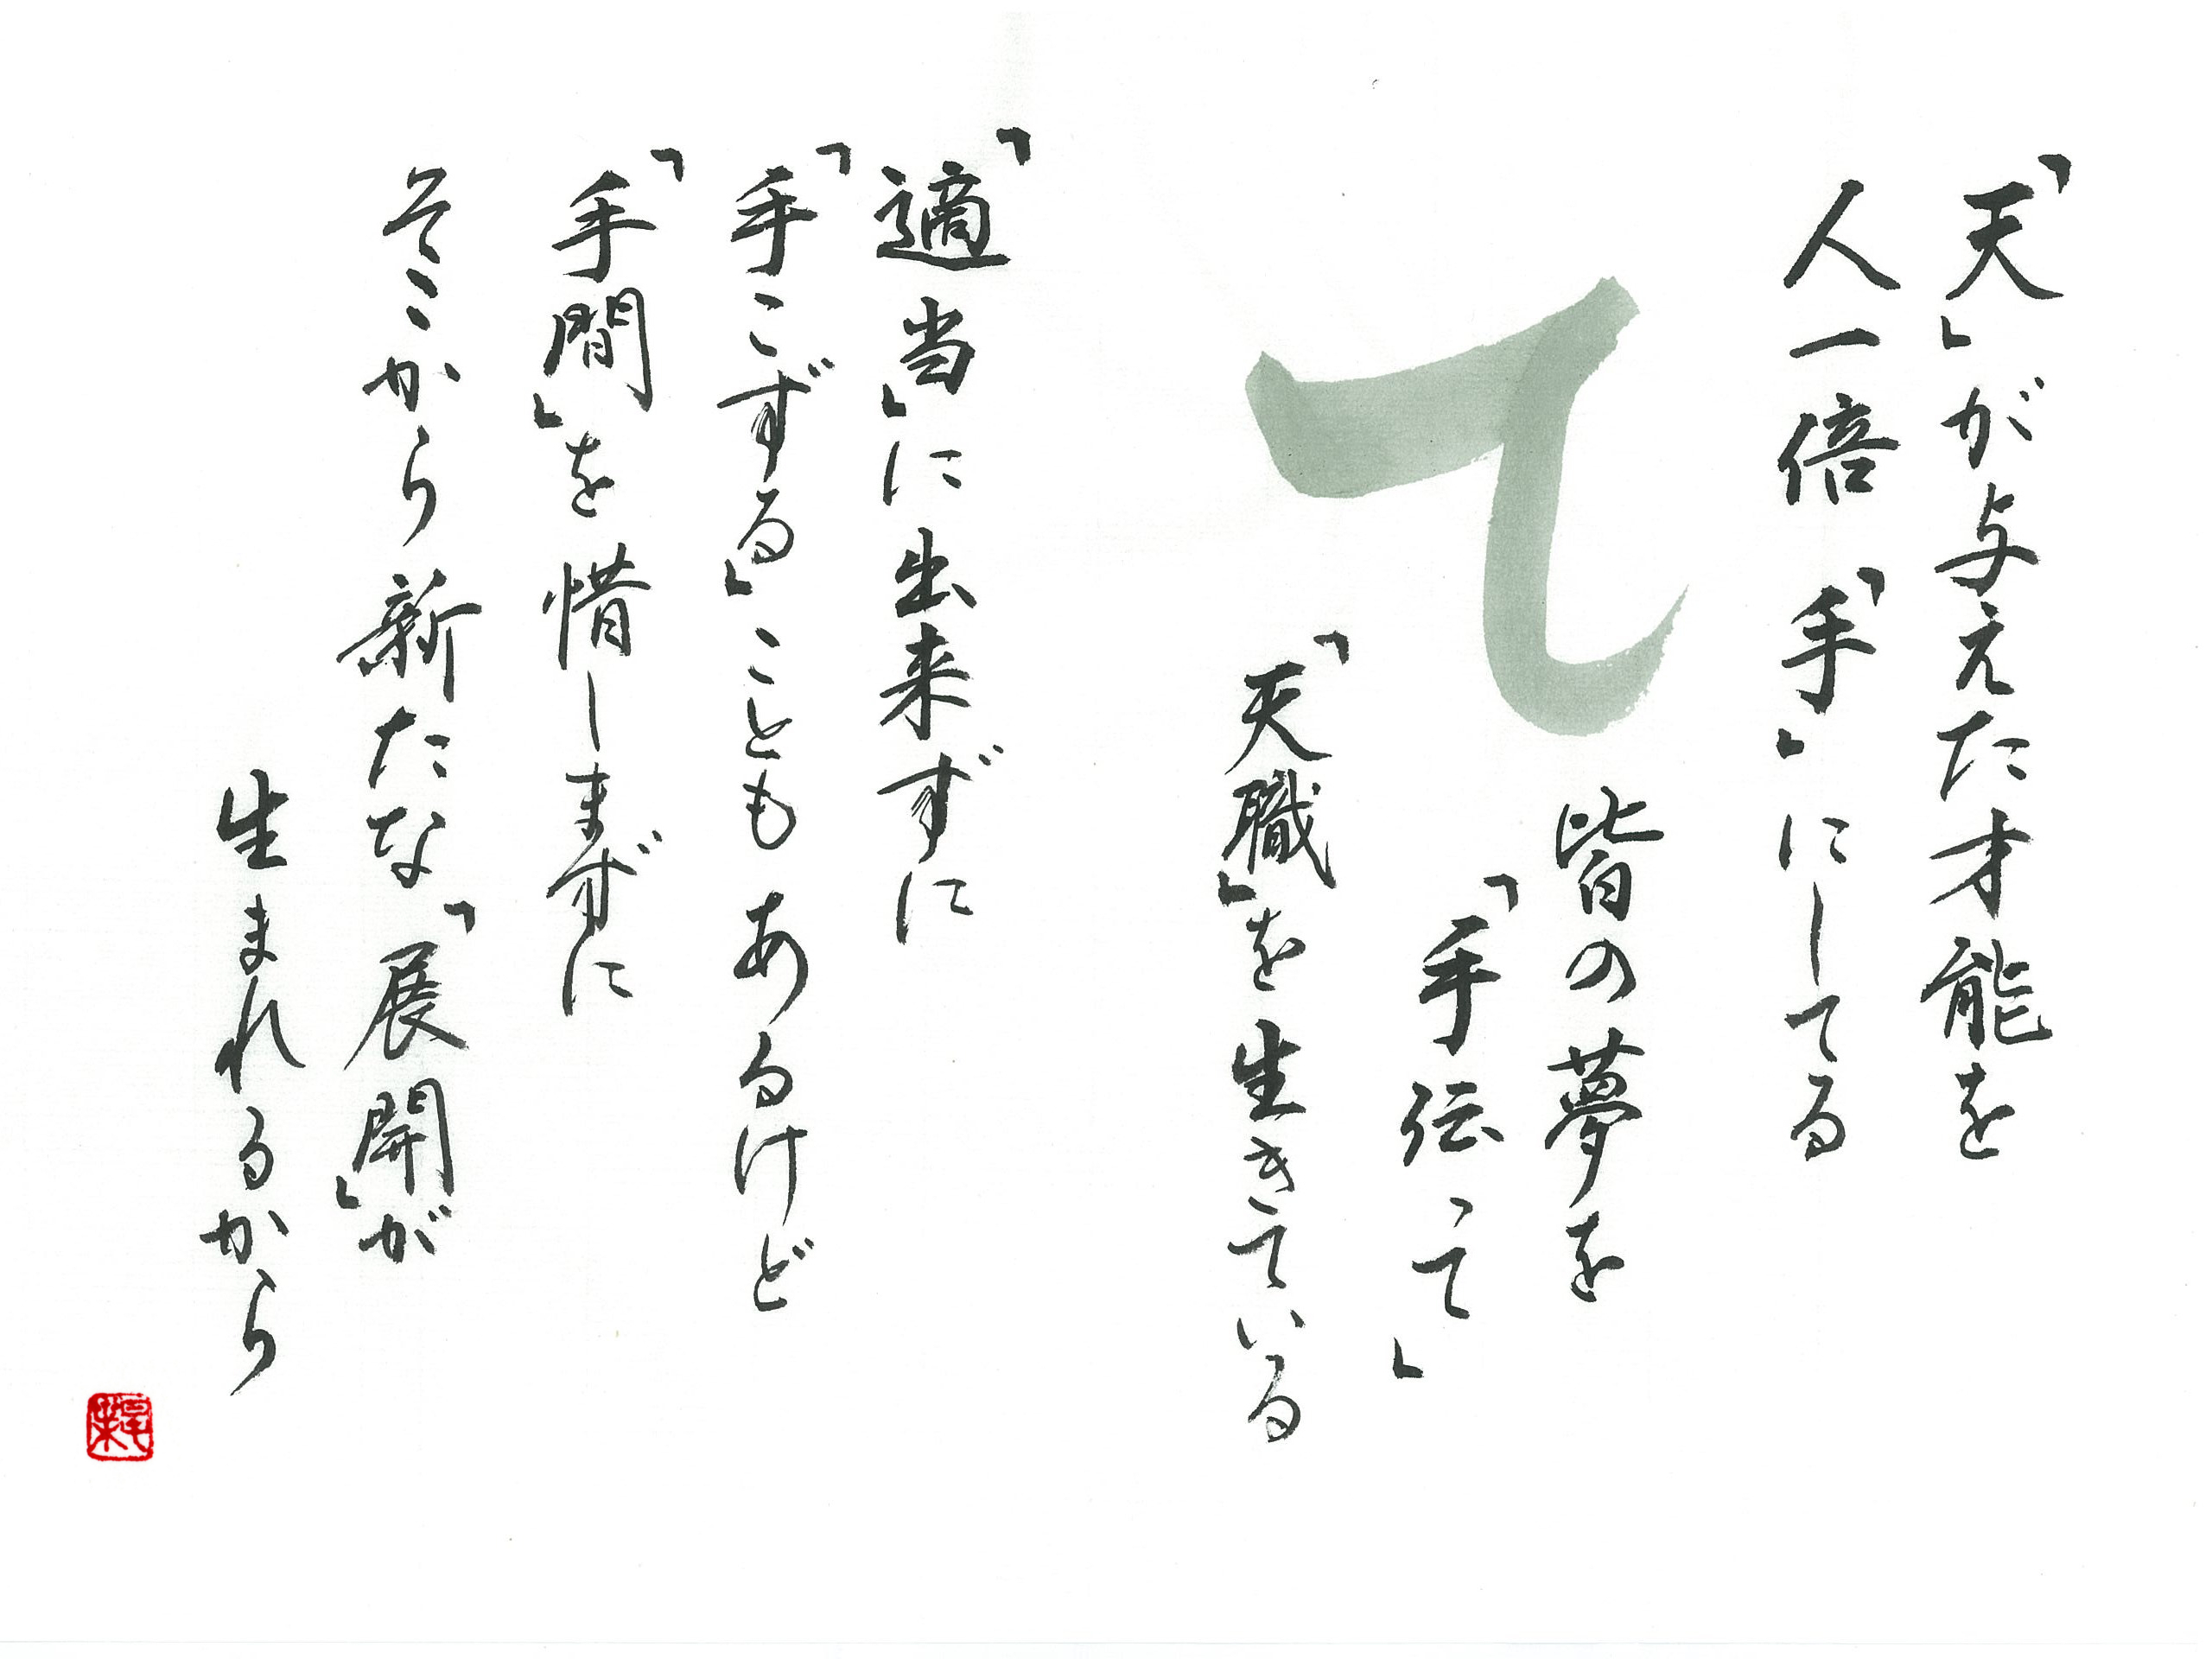 「天」が与えた才能を
人一倍「手」にしてる
て
皆の夢を
「手伝って」
「天職」を生きている
「適当」に出来ずに
「手こずる」こともあるけど
「手間」を惜しまずに
そこから新たな「展開」が
生まれるから